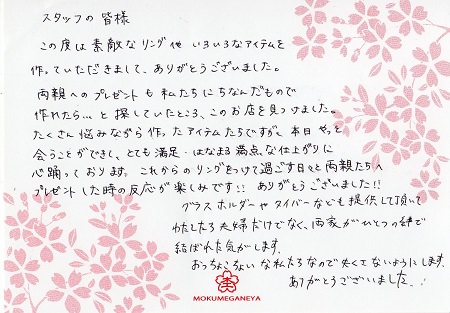 スタッフの皆様
この度は素敵なリング他いろいろなアイテムを
作っていただきまして、ありがとうございました。
両親へのプレゼントも私たちにちなんだもので
作れたら…と探していたところ、このお店を見つけました。
たくさん悩みながら作ったアイテムたちですが、本日やっと
会うことができし、とても満足・はなまる満点な仕上がりに
心踊っております。これからのリングをつけて過ごす日々と両親たちへ
プレゼントした時の反応が楽しみです!! ありがとうございました!!
グラスホルダーやタイバーなども提供して頂いて
わたしたち夫婦だけでなく、両家がひとつの絆で
結ばれた気がします。
おっちょこちょいな私たちなので失くさないようにします。
ありがとうございました。
MOKUMEGANEYA